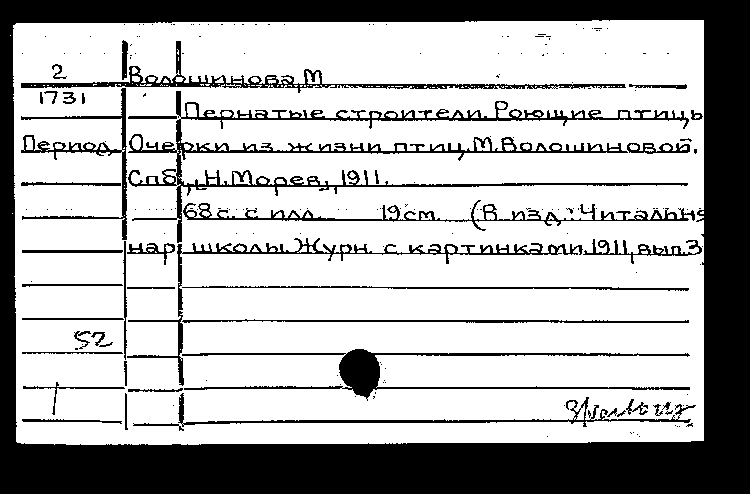 2 Волошинова, М
1731
Пернатые строители. Роющие птицы
Период. Очерки из жизни птиц. М. Волошиновой.
Спб., „Н. Морев", 1911.
68 с. с илл. 19 см. (В изд.: Читальня
нар. школы. Журн. с картинками. 1911, вып. 3)
52